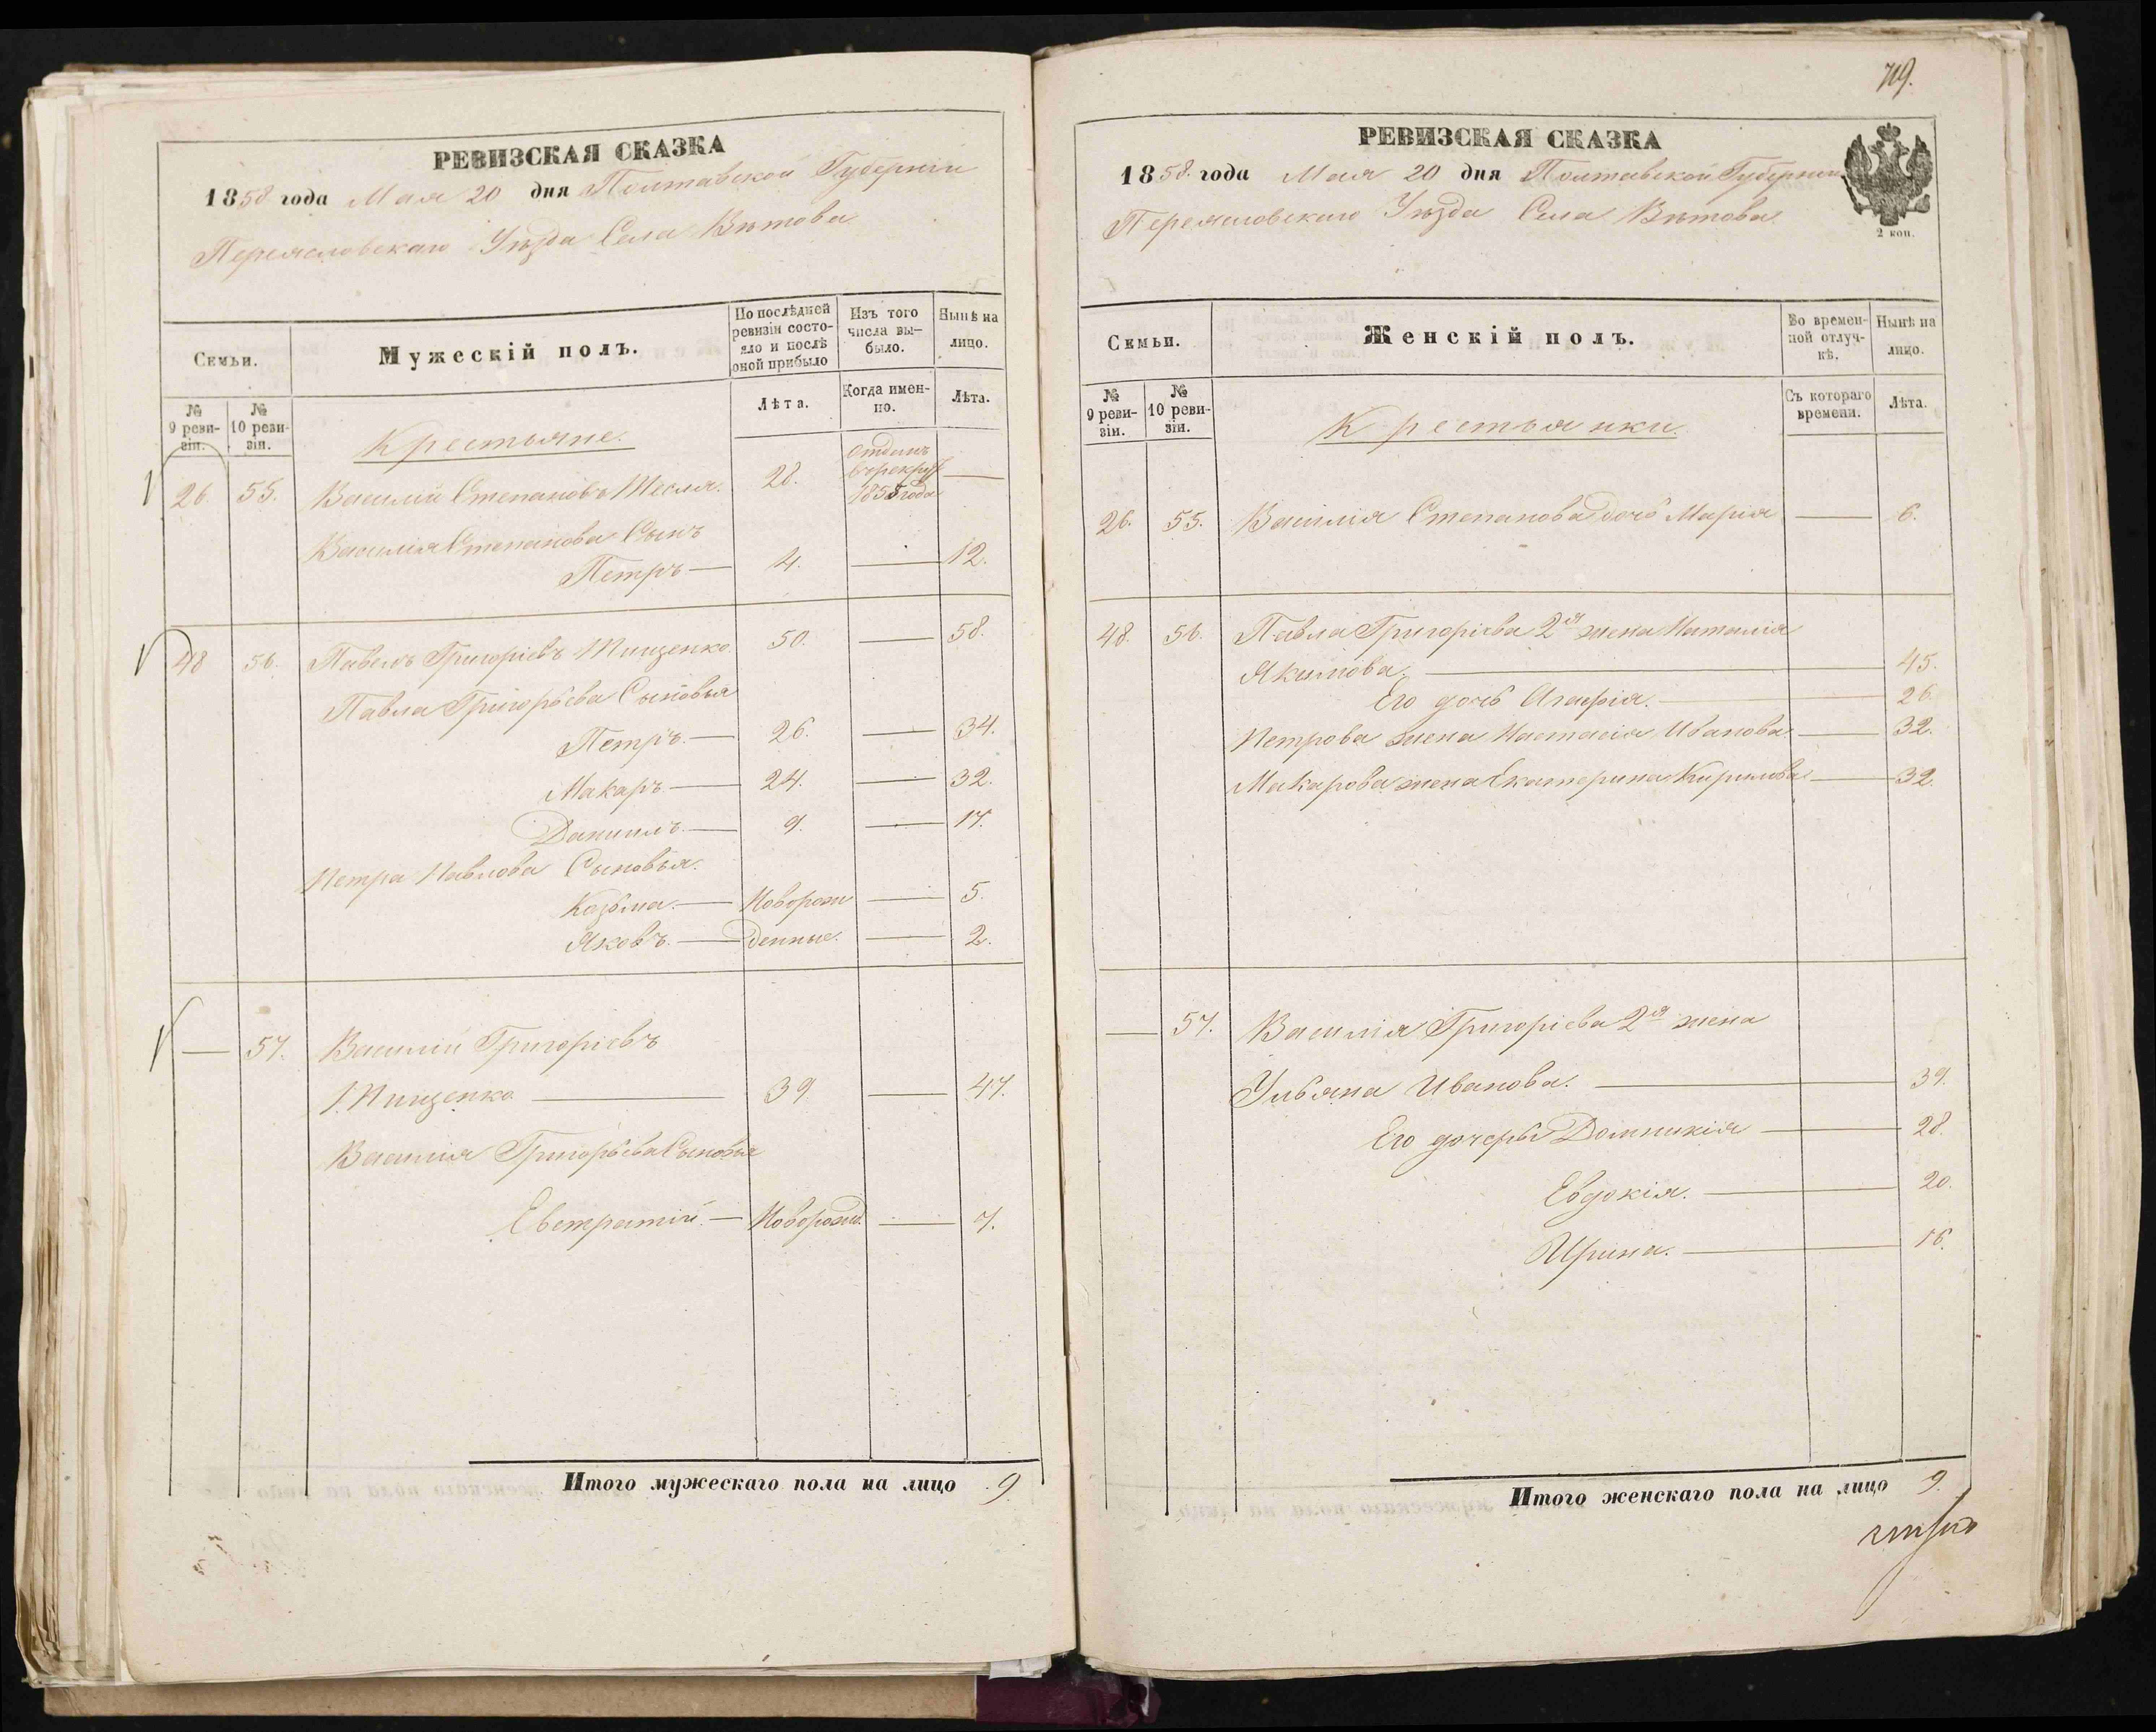 РЕВИЗСКАЯ СКАЗКА
1858 года Мая 20 дня Полтавской Губерніи
Переясловскаго Уѣзда Села Вьтова
Семьи.
Мужескій полъ.
По послѣдней ревизіи состояло и послѣ оной прибыло
Изъ того числа вы-было.
Нынѣ на лицо.
№ 9 реви-зіи.
№ 10 реви-зіи.
Лѣта.
Когда имен-но.
Лѣта.
Крестьяне.
26. 55. Василій Степановъ Тесля. 28. отданъ в рекру 1855 года —
Василія Степанова Сынъ
Петръ — 4. — 12.
48 56. Павелъ Григоріевъ Тищенко. 50. — 58.
Павла Григорьева Сыновья
Петръ. — 26. — 34.
Макаръ — 24. — 32.
Даниилъ. — 9. — 17.
Петра Павлова Сыновья.
Козьма. — Новорож — 5.
Яковъ. — денные. — 2.
— 57. Василій Григоріевъ
Тищенко — 39 — 47.
Василія Григорьева Сыновья
Евстратій. — Новорожд. — 7.
Итого мужескаго пола на лицо 9.
719.
РЕВИЗСКАЯ СКАЗКА
1858. года Мая 20 дня Полтавской Губерніи
Переясловскаго Уѣзда Села Вьтова
2 коп.
Семьи.
Женскій полъ.
Во времен-ной отлуч-кѣ.
Нынѣ на лицо.
№ 9 реви-зіи.
№ 10 реви-зіи.
Съ котораго времени.
Лѣта.
Крестьянки
26. 55. Василія Степанова дочь Марія — 6.
48. 56. Павла Григоріева 2я жена Наталія
Якимова. — 45.
Его дочь Агафія. — 26.
Петрова жена Настасія Иванова — 32.
Макарова жена Екатерина Кирилова — 32.
— 57. Василія Григоріева 2я жена
Ульяна Иванова. — 39.
Его дочери Домникія — 28.
Евдокія. — 20.
Ирина. — 16.
Итого женскаго пола на лицо 9.